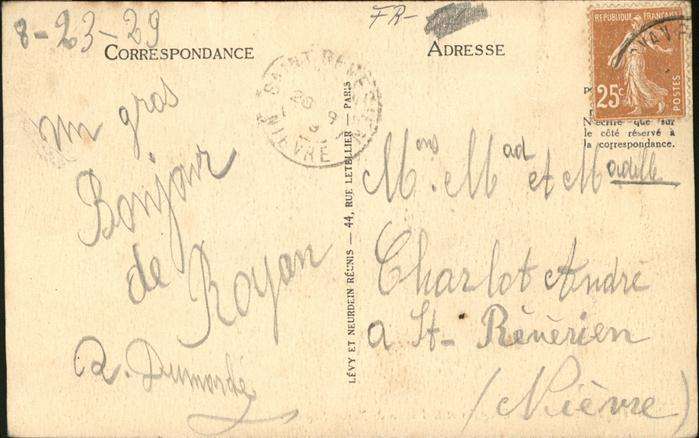 8-23-29
FR-
CORRESPONDANCE
ADRESSE
REPUBLIQUE FRANÇAISE
25c
POSTES
SAINT REVERIEN
NIEVRE
N'écrire que sur
le côté réservé à
la correspondance.
un gros
Bonjour
de Royan
LÉVY ET NEURDEIN RÉUNIS — 44, RUE LETELLIER — PARIS
Mons. Mad et Madelle
Charlot André
a St- Révérien
(Nièvre)